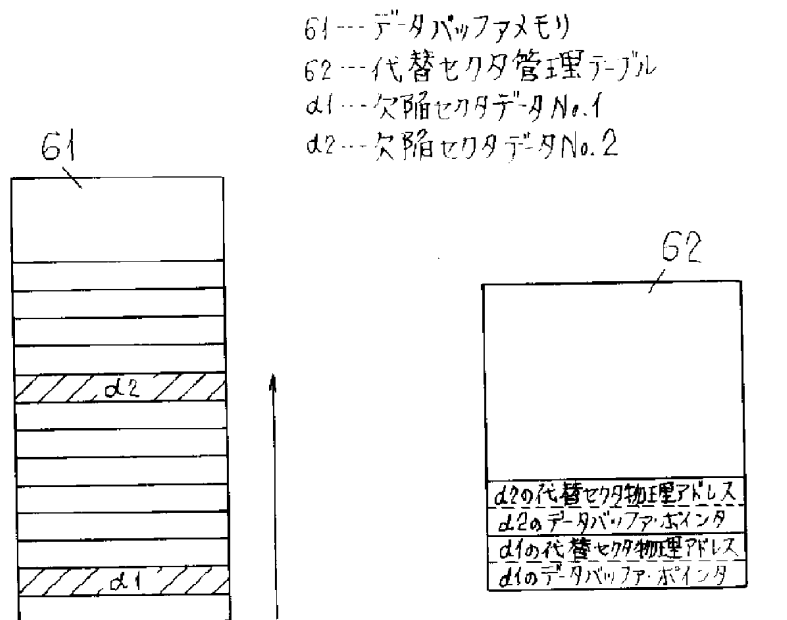 61---データバッファメモリ
62---代替セクタ管理テーブル
d1---欠陥セクタデータNo.1
d2---欠陥セクタデータNo.2
61
62
d2
d1
d2の代替セクタ物理アドレス
d2のデータバッファ・ポインタ
d1の代替セクタ物理アドレス
d1のデータバッファ・ポインタ